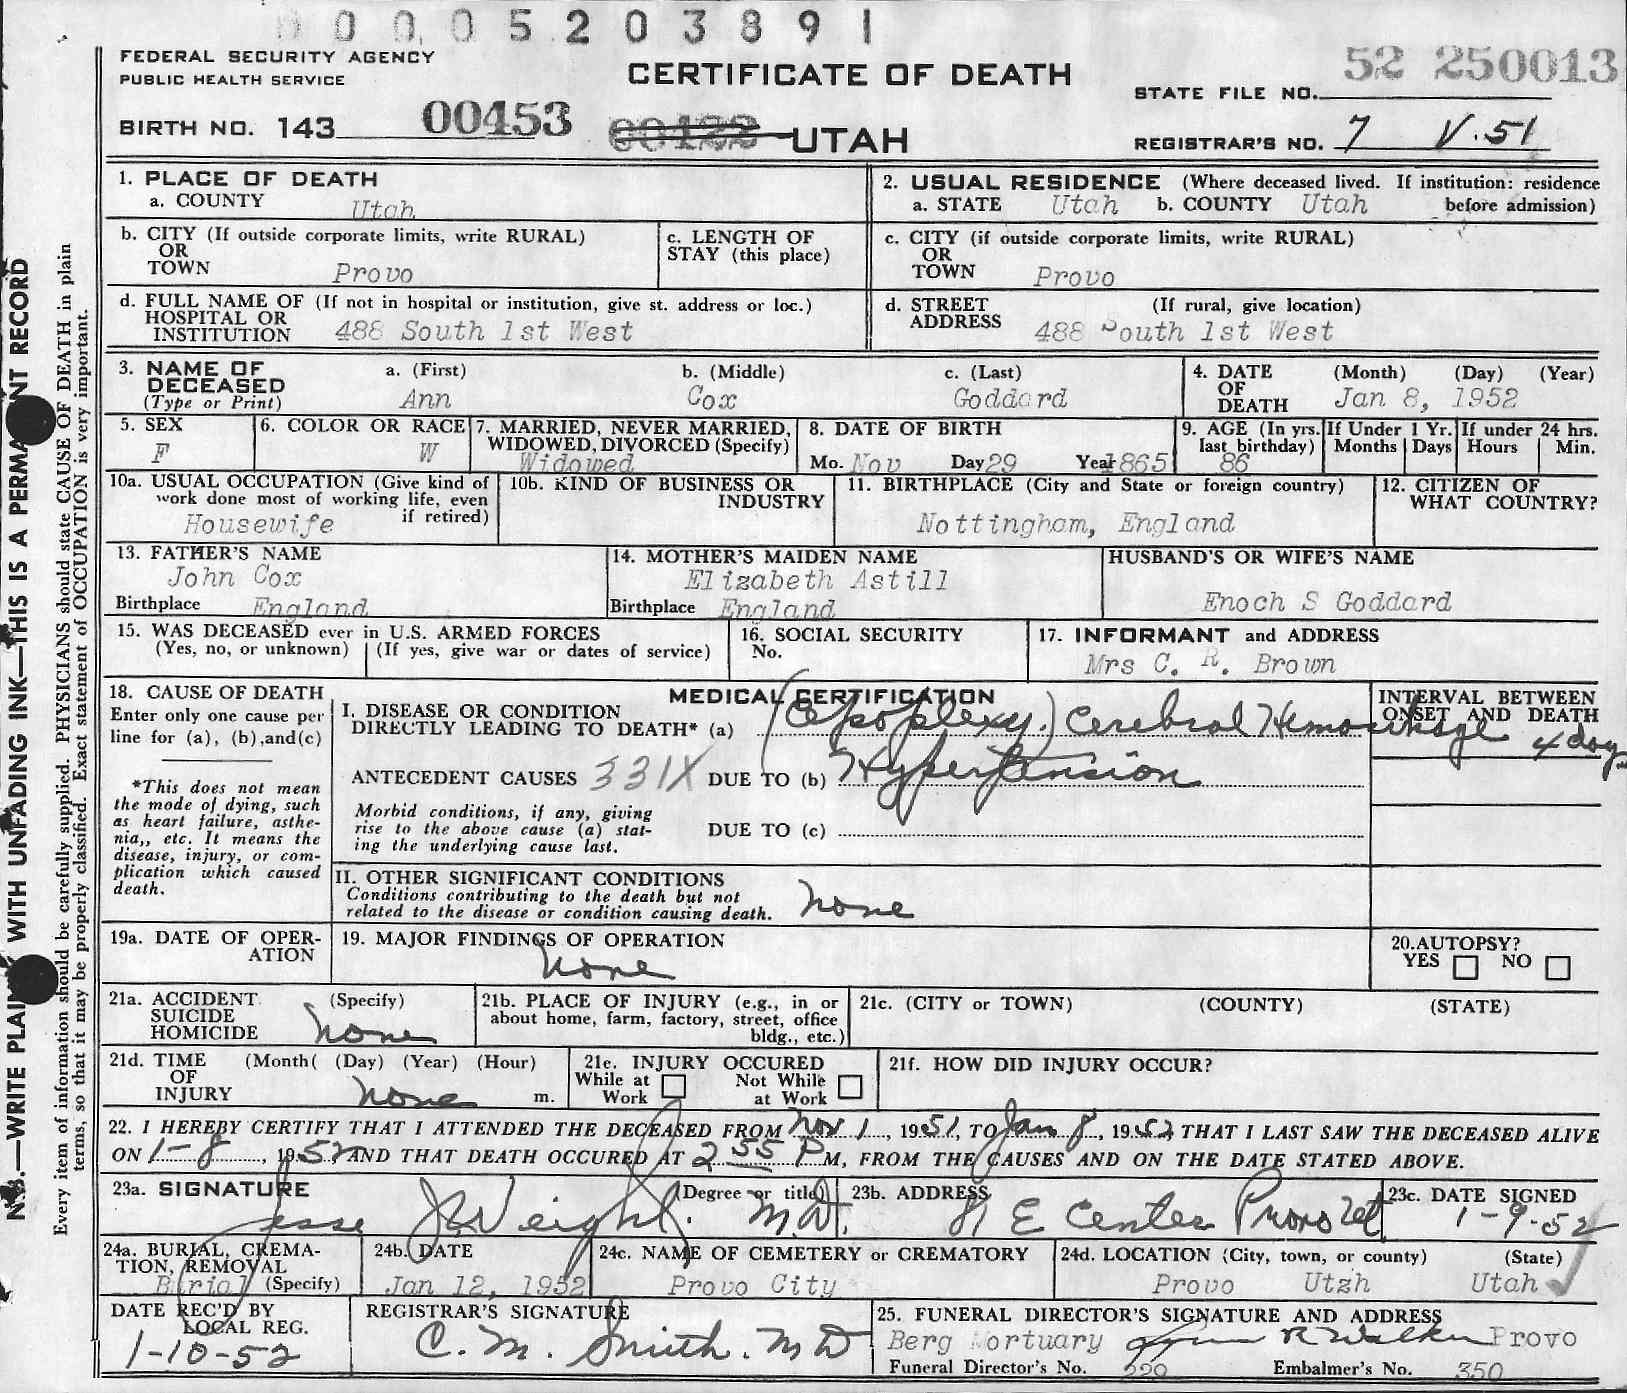 0 0 0 0 5 2 0 3 8 9 1
FEDERAL SECURITY AGENCY
PUBLIC HEALTH SERVICE
CERTIFICATE OF DEATH
52 250013
STATE FILE NO.
BIRTH NO. 143 00453 00422 UTAH
REGISTRAR'S NO. 7 V.51
1. PLACE OF DEATH
a. COUNTY Utah
2. USUAL RESIDENCE (Where deceased lived. If institution: residence before admission)
a. STATE Utah b. COUNTY Utah
b. CITY (If outside corporate limits, write RURAL)
OR
TOWN Provo
c. LENGTH OF
STAY (this place)
c. CITY (if outside corporate limits, write RURAL)
OR
TOWN Provo
d. FULL NAME OF (If not in hospital or institution, give st. address or loc.)
HOSPITAL OR
INSTITUTION 488 South 1st West
d. STREET (If rural, give location)
ADDRESS 488 South 1st West
3. NAME OF DECEASED
(Type or Print)
a. (First) b. (Middle) c. (Last)
Ann Cox Goddard
4. DATE OF DEATH (Month) (Day) (Year)
Jan 8, 1952
5. SEX
F
6. COLOR OR RACE
W
7. MARRIED, NEVER MARRIED,
WIDOWED, DIVORCED (Specify)
Widowed
8. DATE OF BIRTH
Mo. Nov Day 29 Year 1865
9. AGE (In yrs. last birthday)
86
If Under 1 Yr.
Months Days
If under 24 hrs.
Hours Min.
10a. USUAL OCCUPATION (Give kind of
work done most of working life, even
if retired)
Housewife
10b. KIND OF BUSINESS OR
INDUSTRY
11. BIRTHPLACE (City and State or foreign country)
Nottingham, England
12. CITIZEN OF
WHAT COUNTRY?
13. FATHER'S NAME
John Cox
Birthplace England
14. MOTHER'S MAIDEN NAME
Elizabeth Astill
Birthplace England
HUSBAND'S OR WIFE'S NAME
Enoch S Goddard
15. WAS DECEASED ever in U.S. ARMED FORCES
(Yes, no, or unknown) (If yes, give war or dates of service)
16. SOCIAL SECURITY
No.
17. INFORMANT and ADDRESS
Mrs C. R. Brown
18. CAUSE OF DEATH
Enter only one cause per
line for (a), (b), and (c)
*This does not mean
the mode of dying, such
as heart failure, asthe-
nia,, etc. It means the
disease, injury, or com-
plication which caused
death.
MEDICAL CERTIFICATION
I. DISEASE OR CONDITION
DIRECTLY LEADING TO DEATH* (a) (Apoplexy.) Cerebral Hemorrhage
INTERVAL BETWEEN
ONSET AND DEATH
4 days
ANTECEDENT CAUSES 331X DUE TO (b) Hypertension
Morbid conditions, if any, giving
rise to the above cause (a) stat-
ing the underlying cause last.
DUE TO (c)
II. OTHER SIGNIFICANT CONDITIONS
Conditions contributing to the death but not
related to the disease or condition causing death.
none
19a. DATE OF OPER-
ATION
19. MAJOR FINDINGS OF OPERATION
none
20. AUTOPSY?
YES NO
21a. ACCIDENT (Specify)
SUICIDE
HOMICIDE none
21b. PLACE OF INJURY (e.g., in or
about home, farm, factory, street, office
bldg., etc.)
21c. (CITY or TOWN) (COUNTY) (STATE)
21d. TIME (Month( (Day) (Year) (Hour)
OF
INJURY none m.
21e. INJURY OCCURED
While at Work Not While at Work
21f. HOW DID INJURY OCCUR?
22. I HEREBY CERTIFY THAT I ATTENDED THE DECEASED FROM Nov 1, 1951, TO Jan 8, 1952 THAT I LAST SAW THE DECEASED ALIVE
ON 1-8, 1952 AND THAT DEATH OCCURED AT 2 55 P M, FROM THE CAUSES AND ON THE DATE STATED ABOVE.
23a. SIGNATURE (Degree or title)
Jesse J Weight. M.D.
23b. ADDRESS
81 E Center Provo Ut
23c. DATE SIGNED
1-9-52
24a. BURIAL, CREMA-
TION, REMOVAL
Burial (Specify)
24b. DATE
Jan 12, 1952
24c. NAME OF CEMETERY or CREMATORY
Provo City
24d. LOCATION (City, town, or county) (State)
Provo Utzh Utah
DATE REC'D BY
LOCAL REG.
1-10-52
REGISTRAR'S SIGNATURE
C. M. Smith. MD
25. FUNERAL DIRECTOR'S SIGNATURE AND ADDRESS
Berg Mortuary R Walker Provo
Funeral Director's No. 229 Embalmer's No. 350
N.B.—WRITE PLAINLY WITH UNFADING INK—THIS IS A PERMANENT RECORD
Every item of information should be carefully supplied. PHYSICIANS should state CAUSE OF DEATH in plain
terms, so that it may be properly classified. Exact statement of OCCUPATION is very important.